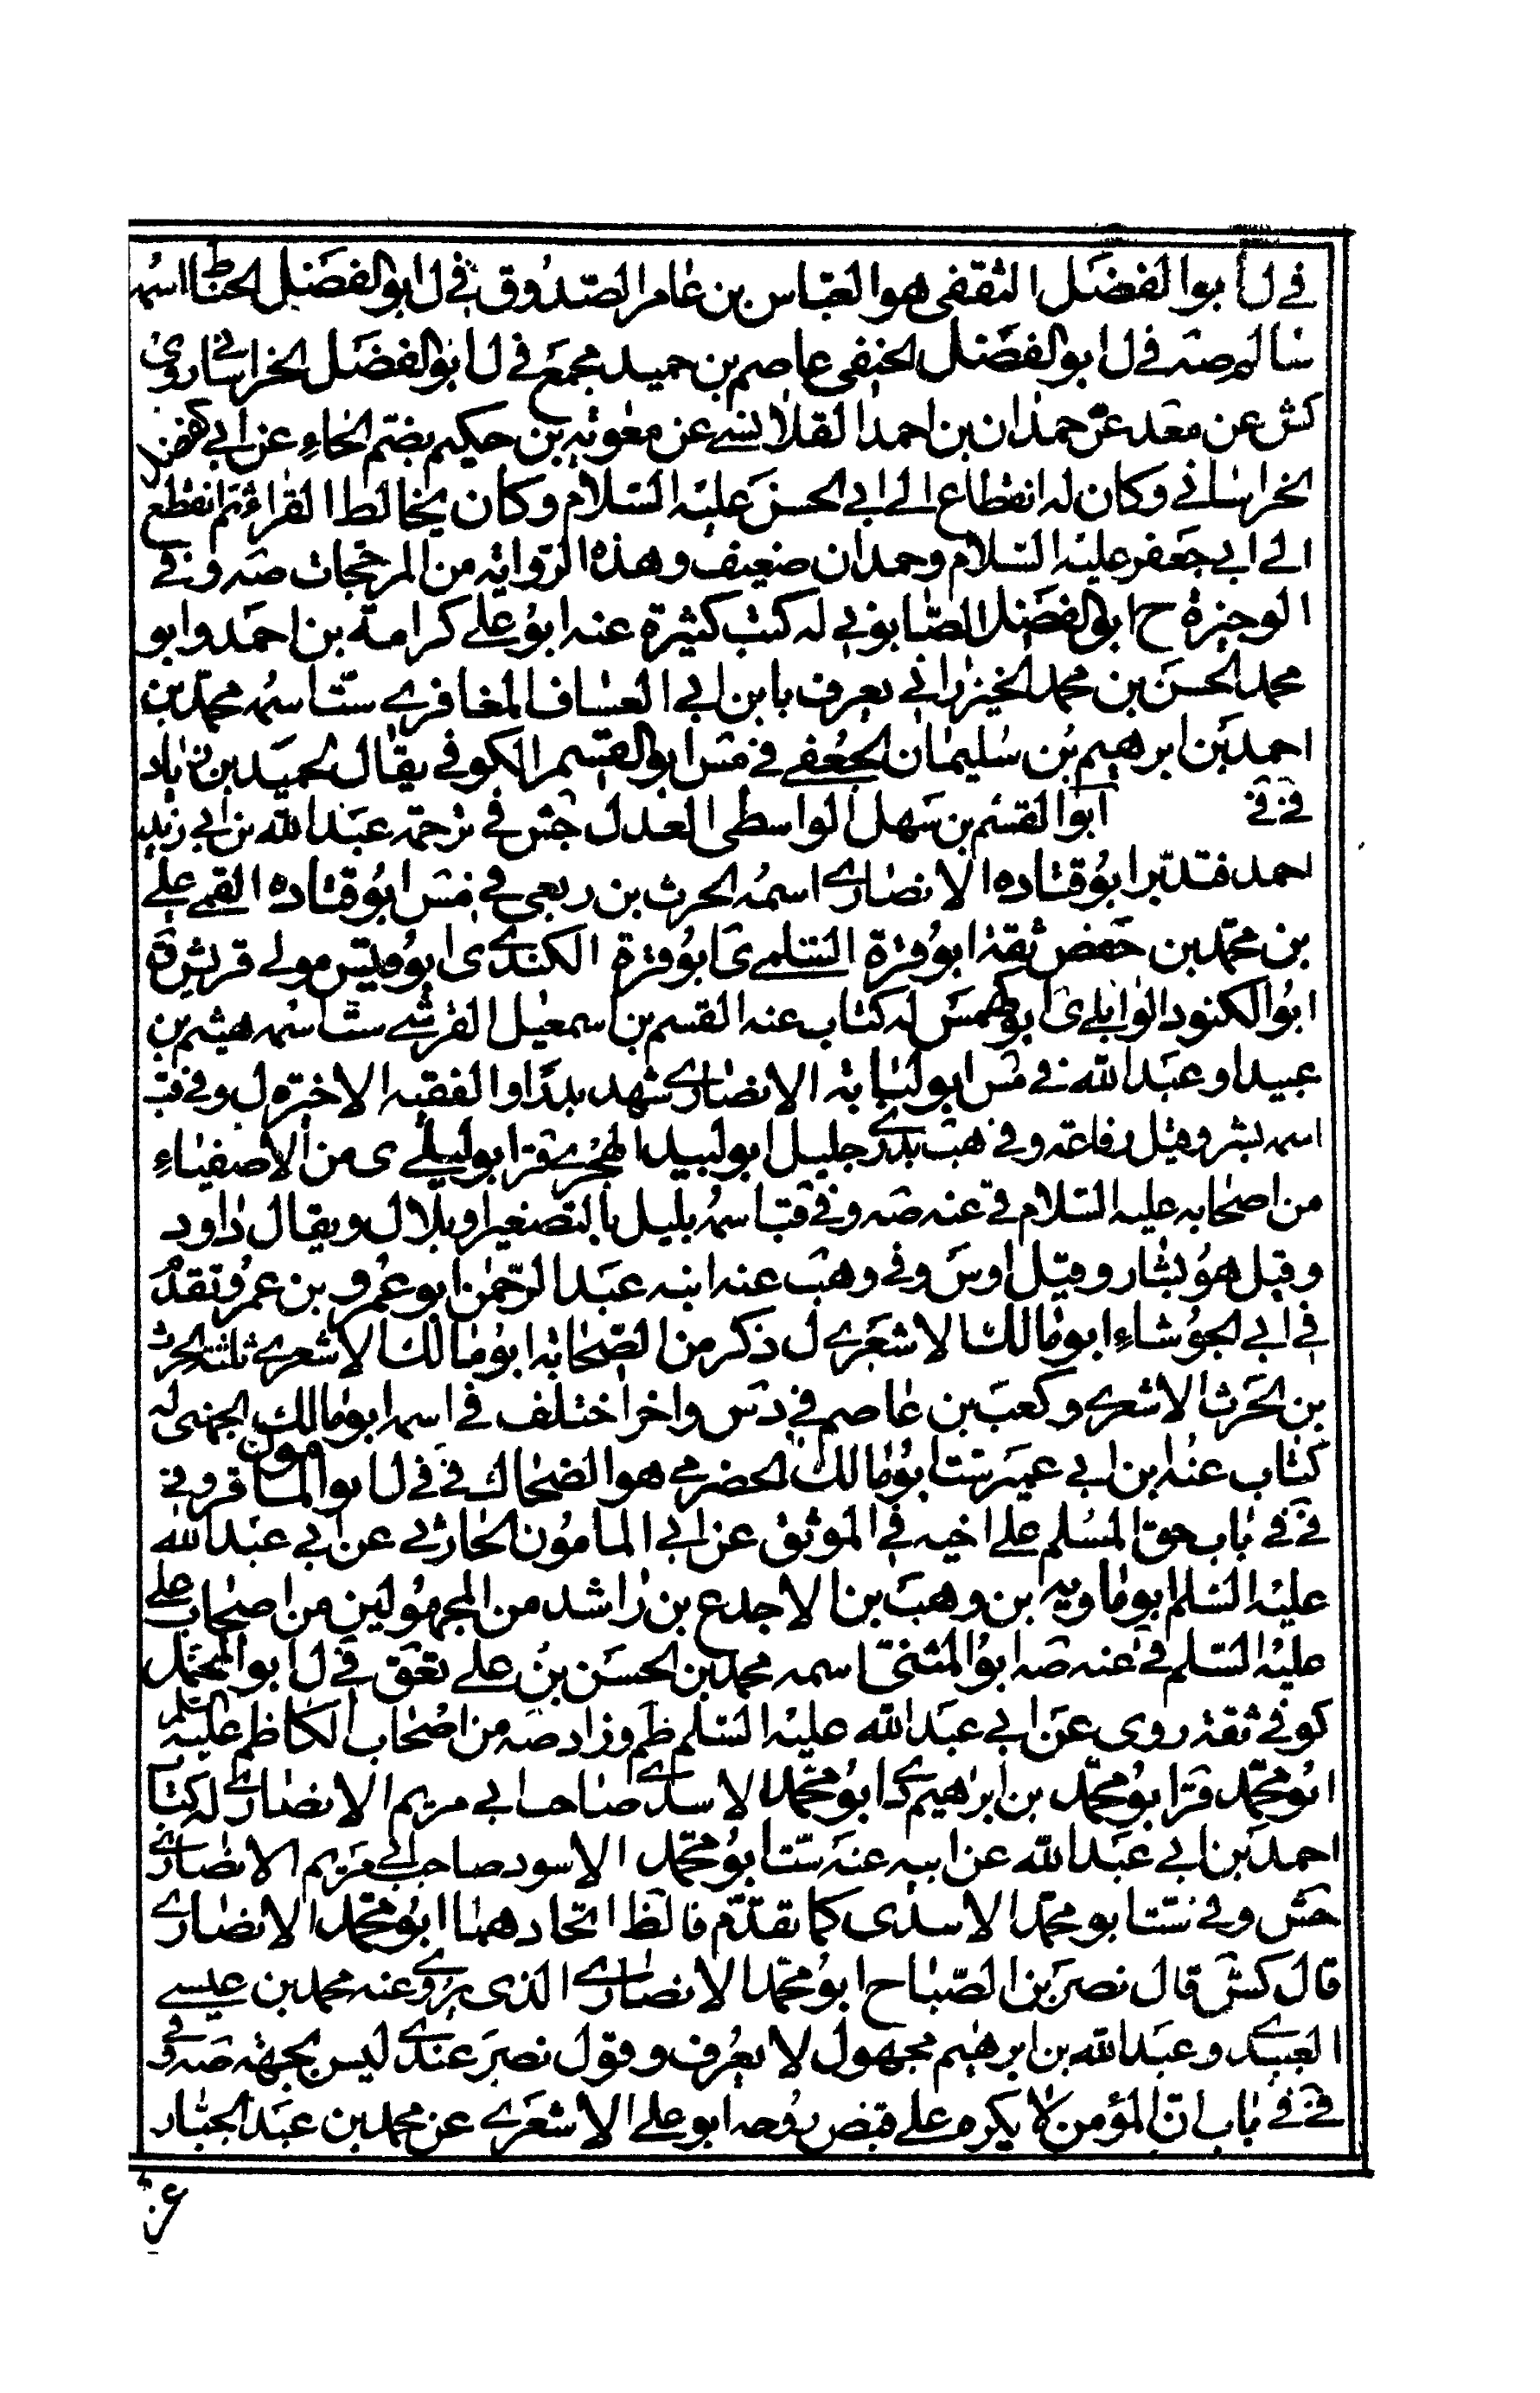 في ل ابو الفضل الثقفي هو العباس بن عامر الصدوق في ل ابو الفضل الحناط اسمه
سالم صه في ل ابو الفضل الحنفي عاصم بن حميد مجمع في ل ابو الفضل الخراساني روى
كش عن معد عن حمدان بن احمد القلانسي عن معوية بن حكيم بضم الحاء عن ابي الفضل
الخراساني وكان له انقطاع الى ابي الحسن عليه السلام وكان يخالط القراء ثم انقطع
الى ابي جعفر عليه السلام وحمدان ضعيف وهذه الرواية من المرجحات صه وفي
الوجيزة ح ابو الفضل الصابوني له كتب كثيرة عنه ابو علي كرامة بن احمد وابو
محمد الحسن بن محمد الخيزراني يعرف بابن ابي العساف المغافري ست اسمه محمد بن
احمد بن ابرهيم بن سليمان الجعفي في مش ابو القسم الكوفي يقال لحميد بن زياد
في في ابو القسم بن سهل الواسطي العدل جش في ترجمة عبد الله بن ابي زيد
احمد فتدبر ابو قتاده الانصاري اسمه الحرث بن ربعي في مش ابو قتاده القمي علي
بن محمد بن حفص ثقة ابو قرة السلمي ى ابو قرة الكندي ى ابو قيس مولى قريش ة
ابو الكنود الوابلي ى ابو كهمس له كتاب عنه القسم بن سمعيل القرشي ست اسمه هيثم بن
عبيد او عبد الله في مش ابو لبابة الانصاري شهد بدرا والعقبة الاخيرة ل وفي قب
اسمه بشر وقيل رفاعة وفي هب بدري جليل ابو لبيد الهجري قر ابو ليلى ى من الاصفياء
من اصحابه عليه السلام في عنه صه وفي قب اسمه بليل بالتصغير او بلال ويقال داود
وقيل هو بشار وقيل اوس وفي وهب عنه ابنه عبد الرحمن ابو عمرو بن عمرو تقدم
في ابي الجوشاء ابو مالك الاشعري ل ذكر من الصحابة ابو مالك الاشعري ثلثة الحرث
بن الحرث الاشعري وكعب بن عاصم في دس واخر اختلف في اسمه ابو مالك الجهني له
كتاب عنه ابن ابي عمير ست ابو مالك الحضرمي هو الضحاك في في ل ابو المامون قر وفي
في في باب حق المسلم على اخيه في الموثق عن ابي المامون الحارثي عن ابي عبد الله
عليه السلم ابو ماويه بن وهب بن الاجدع بن راشد من المجهولين من اصحاب علي
عليه السلم في عنه صه ابو المثنى اسمه محمد بن الحسن بن علي تعق في ل ابو المحتمل
كوفي ثقة روى عن ابي عبد الله عليه السلم ظم وزاد صه من اصحاب الكاظم عليه السلم
ابو محمد قر ابو محمد بن ابرهيم كدا ابو محمد الاسدي صاحب ابي مريم الانصاري له كتاب
احمد بن ابي عبد الله عن ابيه عنه ست ابو محمد الاسود صاحب ابي مريم الانصاري
جش وفي ست ابو محمد الاسدي كما تقدم فالظ اتحادهما ابو محمد الانصاري
قال كش قال نصر بن الصباح ابو محمد الانصاري الذي يروي عنه محمد بن عيسى
العبيدي وعبد الله بن ابرهيم مجهول لا يعرف وقول نصر عندي ليس بحجة صه وفي
في في باب ان المؤمن لا يكره على قبض روحه ابو علي الاشعري عن محمد بن عبد الجبار